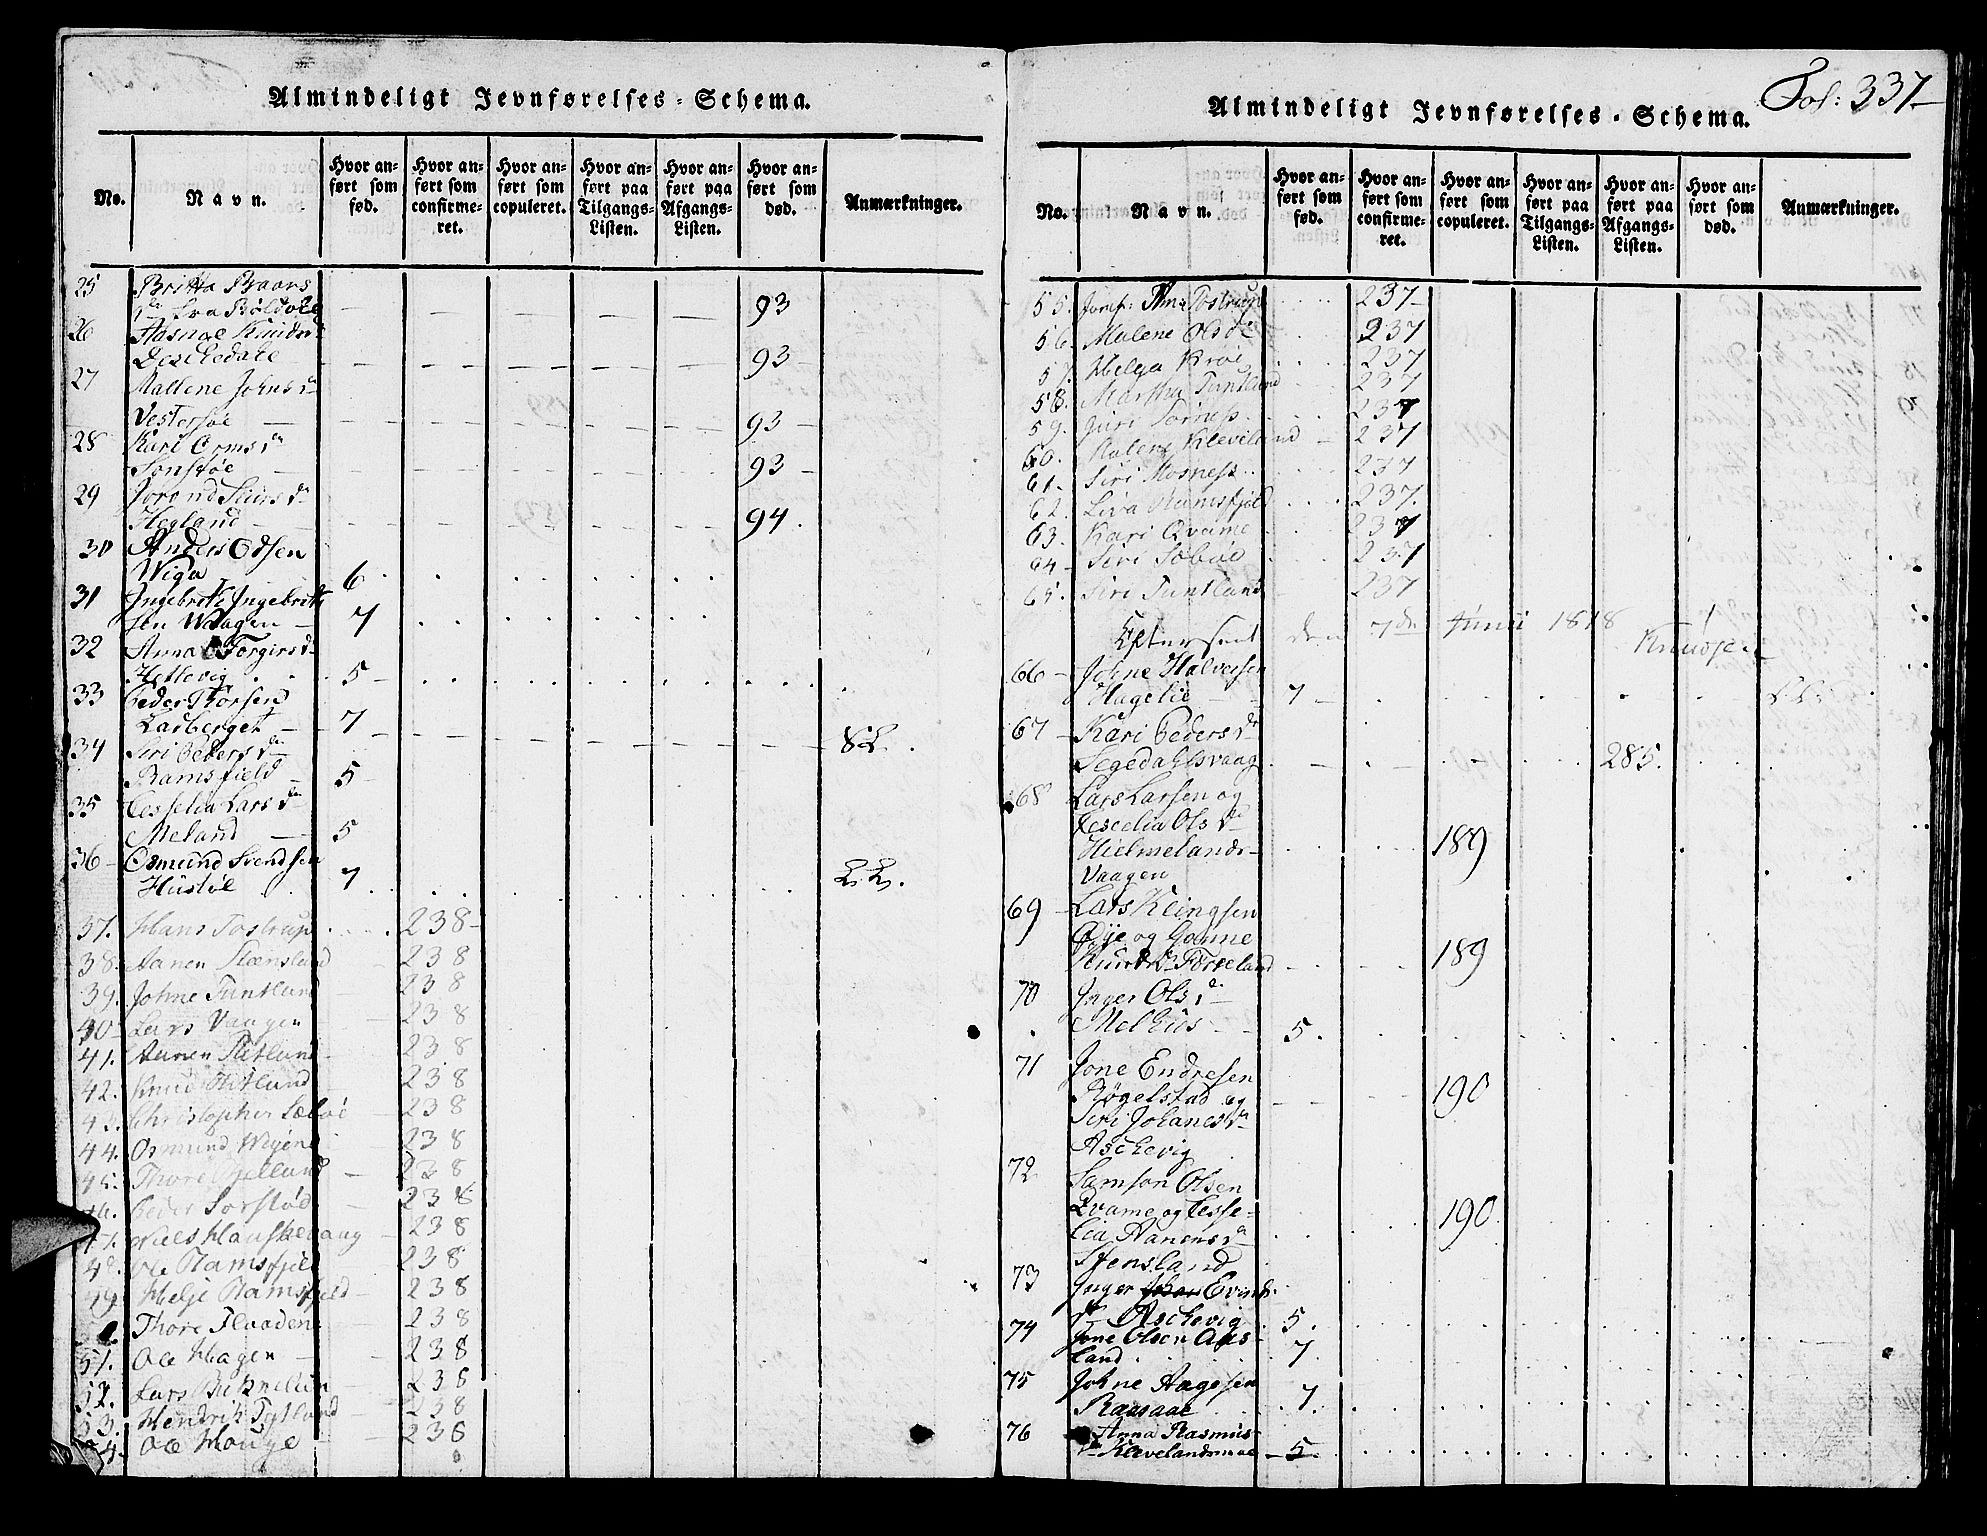 Almindeligt Jevnførelses-Schema.
No.
Navn.
Hvor anført som fød.
Hvor anført som confirmeret.
Hvor anført som copuleret.
Hvor anført paa Tilgangs-Listen.
Hvor anført paa Afgangs-Listen.
Hvor anført som død.
Anmærkninger.
25 Britha Baars
dr fra Bøldale 93
26 Aasnae Knuds
Deschedale 93
27 Mallene Johns dr
Vestersøe 93
28 Kari Orms dr
Sonstøe 93
29 Jorond Siurs dr
Hegland 94.
30 Anders Edsen
Wiga 6
31 Ingebrikt Ingebrikt
sen Waagen 7
32 Anna Torgirs dr
Hetlevig 5
33 Peder Thorsen
Ladberget 7 S L.
34 Siri Peders dr
Ramsfield 5
35 Cesselia Lars dr
Meland 5
36 Osmund Svendsen
Hustøe 7 L. L.
37. Hans Tostrup 238
38. Aanen Steensland 238
39. Johne Tuntland 238
40 Lars Vaagen 238
41. Aanen Fletland 238
42. Knud Fletland 238
43. Christopher Sæbøe 238
44. Osmund Wigene 238
45. Thore Gjelland 238
46. Peder Sorstød 238
47. Niels Hauskevaag 238
48. Ole Ramsfjeld 238
49 Helje Ramsfjeld 238
Thore Flaaden 238
51. Ole Hagen 238
52. Lars 238
53. Hendrik Tytland 238
54. Ole Houge 238
Almindeligt Jevnførelses-Schema.
Fol: 337
No.
Navn.
Hvor anført som fød.
Hvor anført som confirmeret.
Hvor anført som copuleret.
Hvor anført paa Tilgangs-Listen.
Hvor anført paa Afgangs-Listen.
Hvor anført som død.
Anmærkninger.
55. Jomf: Tostrup 237
56. Malene Olsøe 237
57. Helga Kroe 237
58. Martha Tuntland 237
59. Juri Torness 237
60. Malene Kleveland 237
61. Siri Mosness 237
62. Liva Ramsfjeld 237.
63. Kari Qvame 237
64 Siri Sæbøe 237
65. Siri Tuntland 237
Efterseet den 7de Junii 1818
Knudsen
66 Johne Halversen
Hagelie 7 L. L.
67 Kari Peders dr
Segedahlsvaag 285.
68 Lars Larsen og
Cescelia Ols dr
Hielmelands-
Vaagen 189
69 Lars Klingsen
Øije og Gonne
Knuds dr Førreland 189
70 Inger Ols dr
Melhus 5.
71 Jone Endresen
Røgelstad og
Siri Johanes dr
Aschevig 190
72 Samson Olsen
Qvame og Cesse-
lia Aanens dr
Stensland 190
73 Inger Evinds
dr Aschevig 5.
74 Jone Olsen Aas-
land 7.
75 Johne Aagesen
Raasaae 7.
76 Anna Rasmus
dr Klevelandsmoe 5